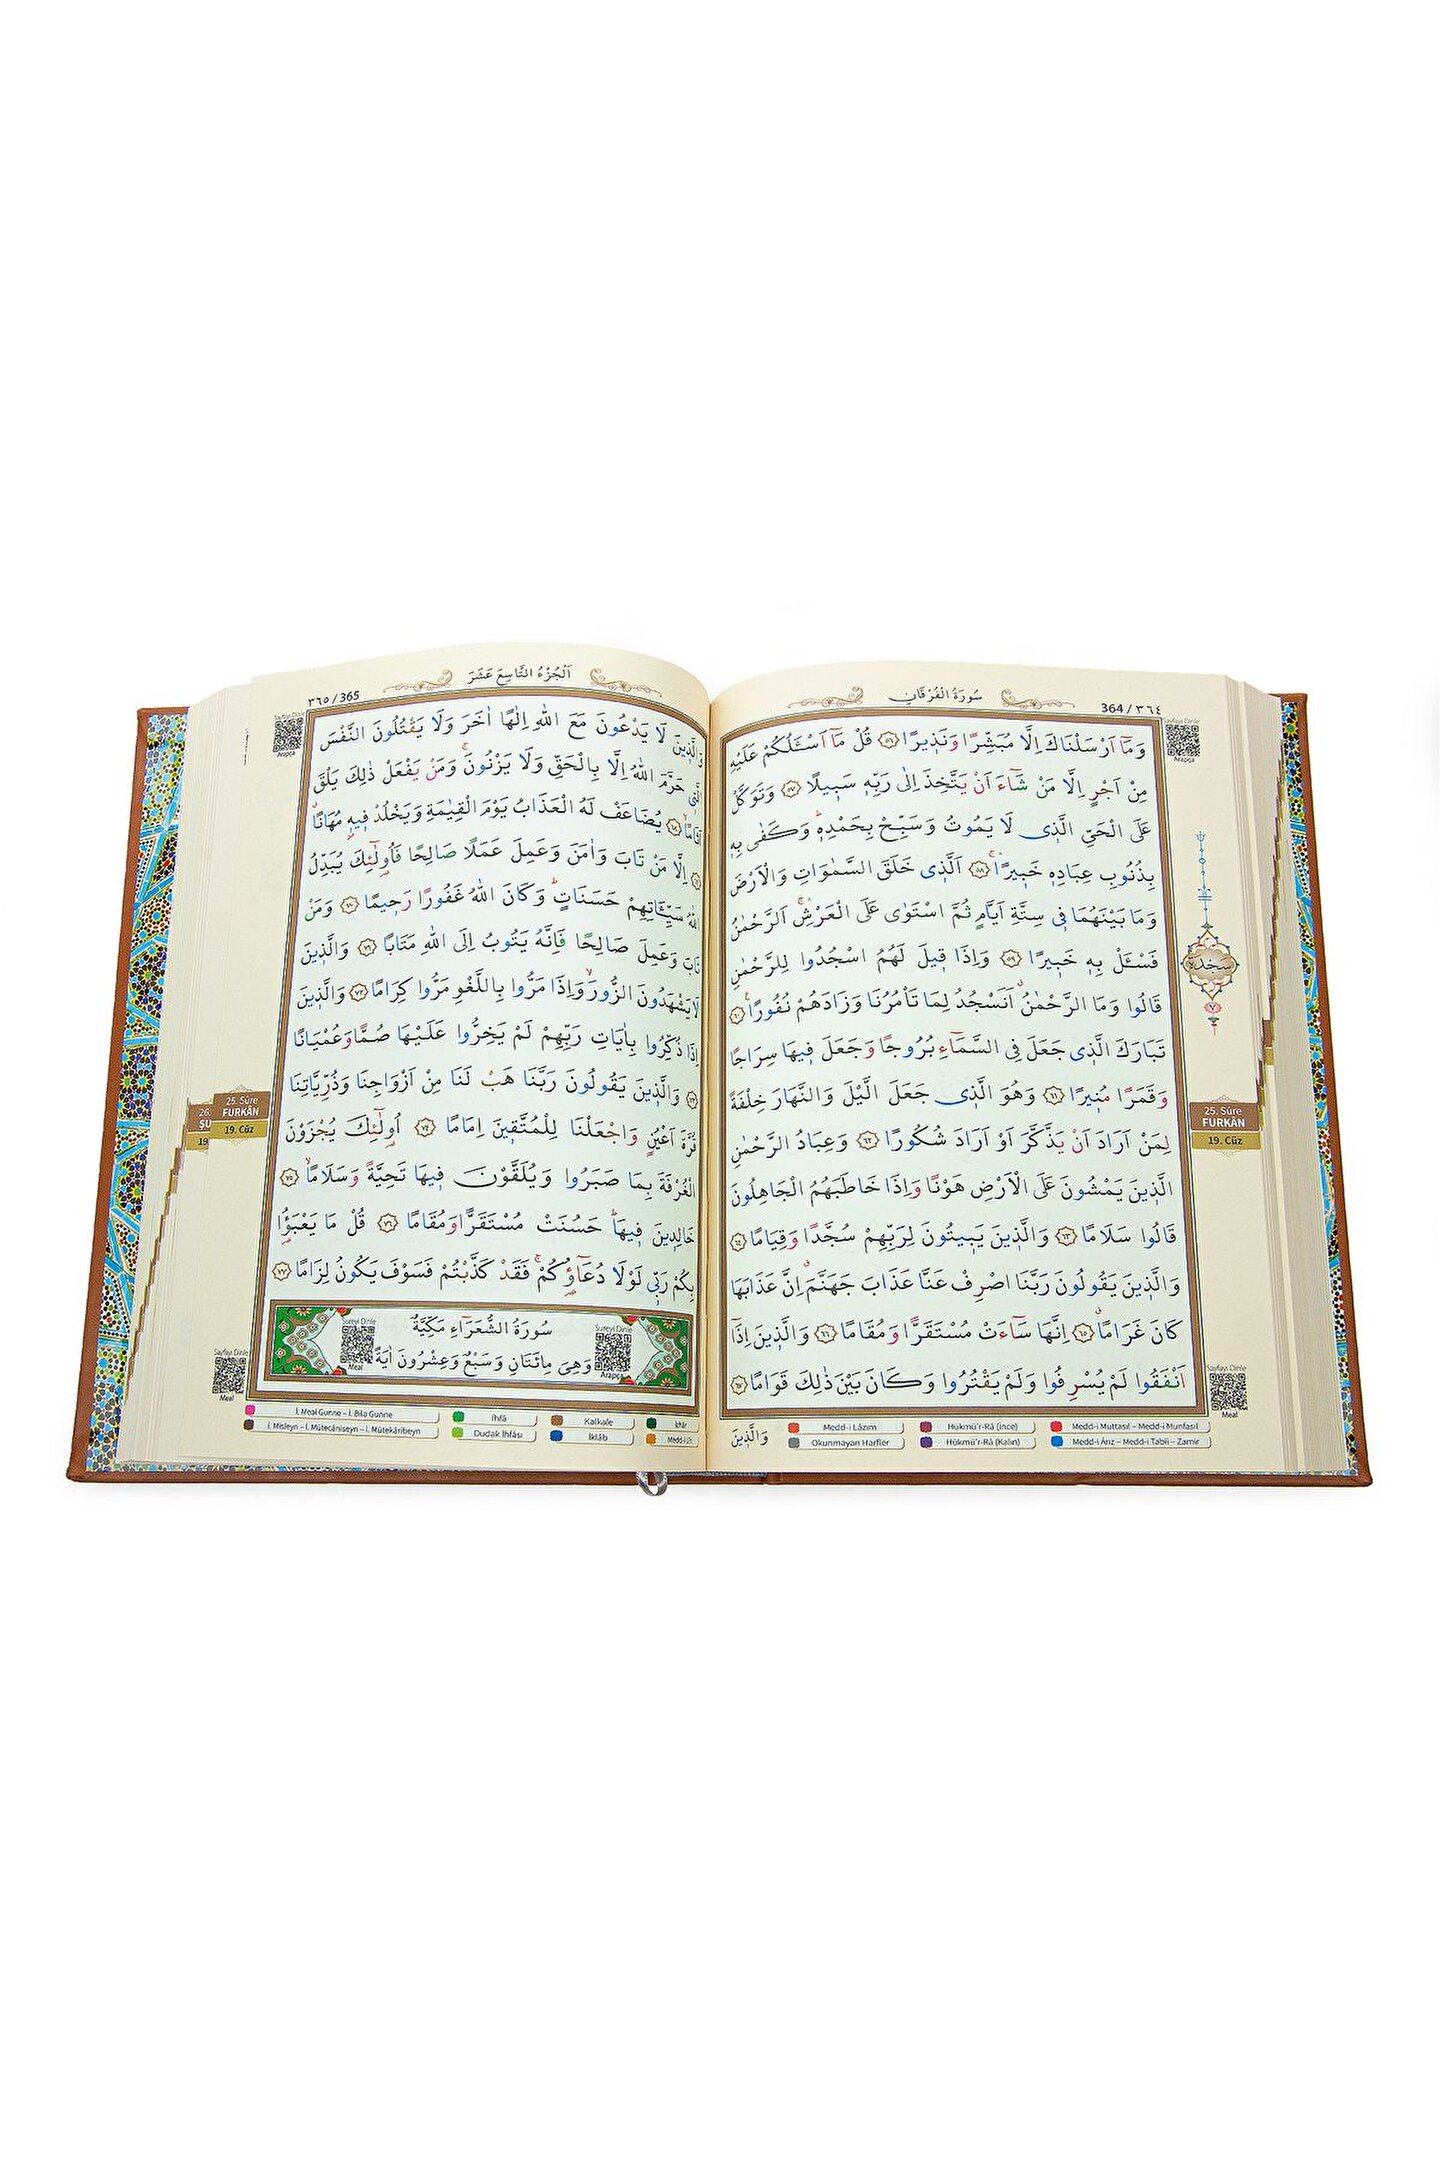 سُورَةُ الْفُرْقَانِ
364 / ٣٦٤
Sayfayı Dinle
Arapça
وَمَٓا اَرْسَلْنَاكَ اِلَّا مُبَشِّرًا وَنَذٖيرًا ﴿٥٦﴾ قُلْ مَٓا اَسْـَٔلُكُمْ عَلَيْهِ
مِنْ اَجْرٍ اِلَّا مَنْ شَٓاءَ اَنْ يَتَّخِذَ اِلٰى رَبِّهٖ سَبٖيلًا ﴿٥٧﴾ وَتَوَكَّلْ
عَلَى الْحَيِّ الَّذٖى لَا يَمُوتُ وَسَبِّحْ بِحَمْدِهٖ وَكَفٰى بِهٖ
بِذُنُوبِ عِبَادِهٖ خَبٖيرًا ﴿٥٨﴾ اَلَّذٖى خَلَقَ السَّمٰوَاتِ وَالْاَرْضَ
وَمَا بَيْنَهُمَا فٖى سِتَّةِ اَيَّامٍ ثُمَّ اسْتَوٰى عَلَى الْعَرْشِ اَلرَّحْمٰنُ
فَسْـَٔلْ بِهٖ خَبٖيرًا ﴿٥٩﴾ وَاِذَا قٖيلَ لَهُمُ اسْجُدُوا لِلرَّحْمٰنِ
قَالُوا وَمَا الرَّحْمٰنُ اَنَسْجُدُ لِمَا تَأْمُرُنَا وَزَادَهُمْ نُفُورًا ﴿٦٠﴾
تَبَارَكَ الَّذٖى جَعَلَ فِى السَّمَٓاءِ بُرُوجًا وَجَعَلَ فٖيهَا سِرَاجًا
وَقَمَرًا مُنٖيرًا ﴿٦١﴾ وَهُوَ الَّذٖى جَعَلَ الَّيْلَ وَالنَّهَارَ خِلْفَةً
لِمَنْ اَرَادَ اَنْ يَذَّكَّرَ اَوْ اَرَادَ شُكُورًا ﴿٦٢﴾ وَعِبَادُ الرَّحْمٰنِ
الَّذٖينَ يَمْشُونَ عَلَى الْاَرْضِ هَوْنًا وَاِذَا خَاطَبَهُمُ الْجَاهِلُونَ
قَالُوا سَلَامًا ﴿٦٣﴾ وَالَّذٖينَ يَبٖيتُونَ لِرَبِّهِمْ سُجَّدًا وَقِيَامًا ﴿٦٤﴾
وَالَّذٖينَ يَقُولُونَ رَبَّنَا اصْرِفْ عَنَّا عَذَابَ جَهَنَّمَ اِنَّ عَذَابَهَا
كَانَ غَرَامًا ﴿٦٥﴾ اِنَّهَا سَٓاءَتْ مُسْتَقَرًّا وَمُقَامًا ﴿٦٦﴾ وَالَّذٖينَ اِذَٓا
اَنْفَقُوا لَمْ يُسْرِفُوا وَلَمْ يَقْتُرُوا وَكَانَ بَيْنَ ذٰلِكَ قَوَامًا ﴿٦٧﴾
سجدة
٧
25. Sûre
FURKÂN
19. Cüz
Sayfayı Dinle
Meal
وَالَّذٖينَ
Medd-i Lâzım
Hükmü'r-Râ (İnce)
Medd-i Muttasıl – Medd-i Munfasıl
Okunmayan Harfler
Hükmü'r-Râ (Kalın)
Medd-i Ârız – Medd-i Tabîi – Zamir
اَلْجُزْءُ التَّاسِعَ عَشَرَ
٣٦٥ / 365
Sayfayı Dinle
Arapça
وَالَّذٖينَ لَا يَدْعُونَ مَعَ اللّٰهِ اِلٰهًا اٰخَرَ وَلَا يَقْتُلُونَ النَّفْسَ
الَّتٖى حَرَّمَ اللّٰهُ اِلَّا بِالْحَقِّ وَلَا يَزْنُونَ وَمَنْ يَفْعَلْ ذٰلِكَ يَلْقَ
اَثَامًا ﴿٦٨﴾ يُضَاعَفْ لَهُ الْعَذَابُ يَوْمَ الْقِيٰمَةِ وَيَخْلُدْ فٖيهٖ مُهَانًا
﴿٦٩﴾ اِلَّا مَنْ تَابَ وَاٰمَنَ وَعَمِلَ عَمَلًا صَالِحًا فَاُولٰٓئِكَ يُبَدِّلُ
اللّٰهُ سَيِّـَٔاتِهِمْ حَسَنَاتٍ وَكَانَ اللّٰهُ غَفُورًا رَحٖيمًا ﴿٧٠﴾ وَمَنْ
تَابَ وَعَمِلَ صَالِحًا فَاِنَّهُ يَتُوبُ اِلَى اللّٰهِ مَتَابًا ﴿٧١﴾ وَالَّذٖينَ
لَا يَشْهَدُونَ الزُّورَ وَاِذَا مَرُّوا بِاللَّغْوِ مَرُّوا كِرَامًا ﴿٧٢﴾ وَالَّذٖينَ
اِذَا ذُكِّرُوا بِاٰيَاتِ رَبِّهِمْ لَمْ يَخِرُّوا عَلَيْهَا صُمًّا وَعُمْيَانًا
﴿٧٣﴾ وَالَّذٖينَ يَقُولُونَ رَبَّنَا هَبْ لَنَا مِنْ اَزْوَاجِنَا وَذُرِّيَّاتِنَا
قُرَّةَ اَعْيُنٍ وَاجْعَلْنَا لِلْمُتَّقٖينَ اِمَامًا ﴿٧٤﴾ اُولٰٓئِكَ يُجْزَوْنَ
الْغُرْفَةَ بِمَا صَبَرُوا وَيُلَقَّوْنَ فٖيهَا تَحِيَّةً وَسَلَامًا ﴿٧٥﴾
خَالِدٖينَ فٖيهَا حَسُنَتْ مُسْتَقَرًّا وَمُقَامًا ﴿٧٦﴾ قُلْ مَا يَعْبَؤُا
بِكُمْ رَبّٖى لَوْلَا دُعَٓاؤُكُمْ فَقَدْ كَذَّبْتُمْ فَسَوْفَ يَكُونُ لِزَامًا ﴿٧٧﴾
Sureyi Dinle
Arapça
سُورَةُ الشُّعَرَاءِ مَكِّيَّةٌ
وَهِىَ مِائَتَانِ وَسَبْعٌ وَعِشْرُونَ اٰيَةً
Sureyi Dinle
Meal
25. Sûre
FURKÂN
19. Cüz
26.
ŞU
19
Sayfayı Dinle
Meal
İ. Meal Gunne – İ. Bila Gunne
İhfâ
Kalkale
İzhâr
İ. Misleyn – İ. Mütecâniseyn – İ. Mütekâribeyn
Dudak İhfâsı
İklâb